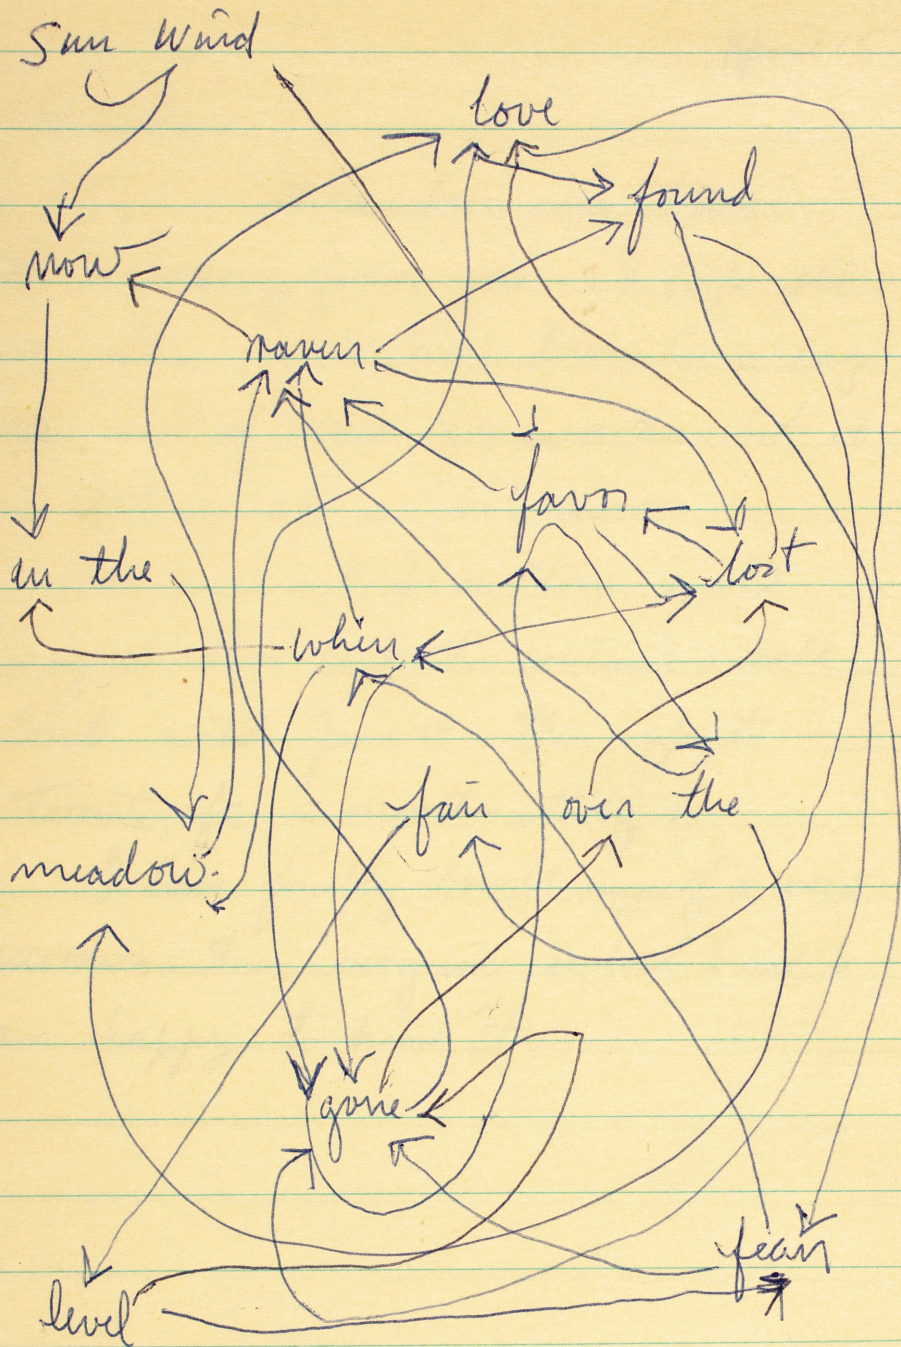 Sun Wind
love
found
now
raven
favor
lost
in the
when
fair over the
meadow
gone
fear
level